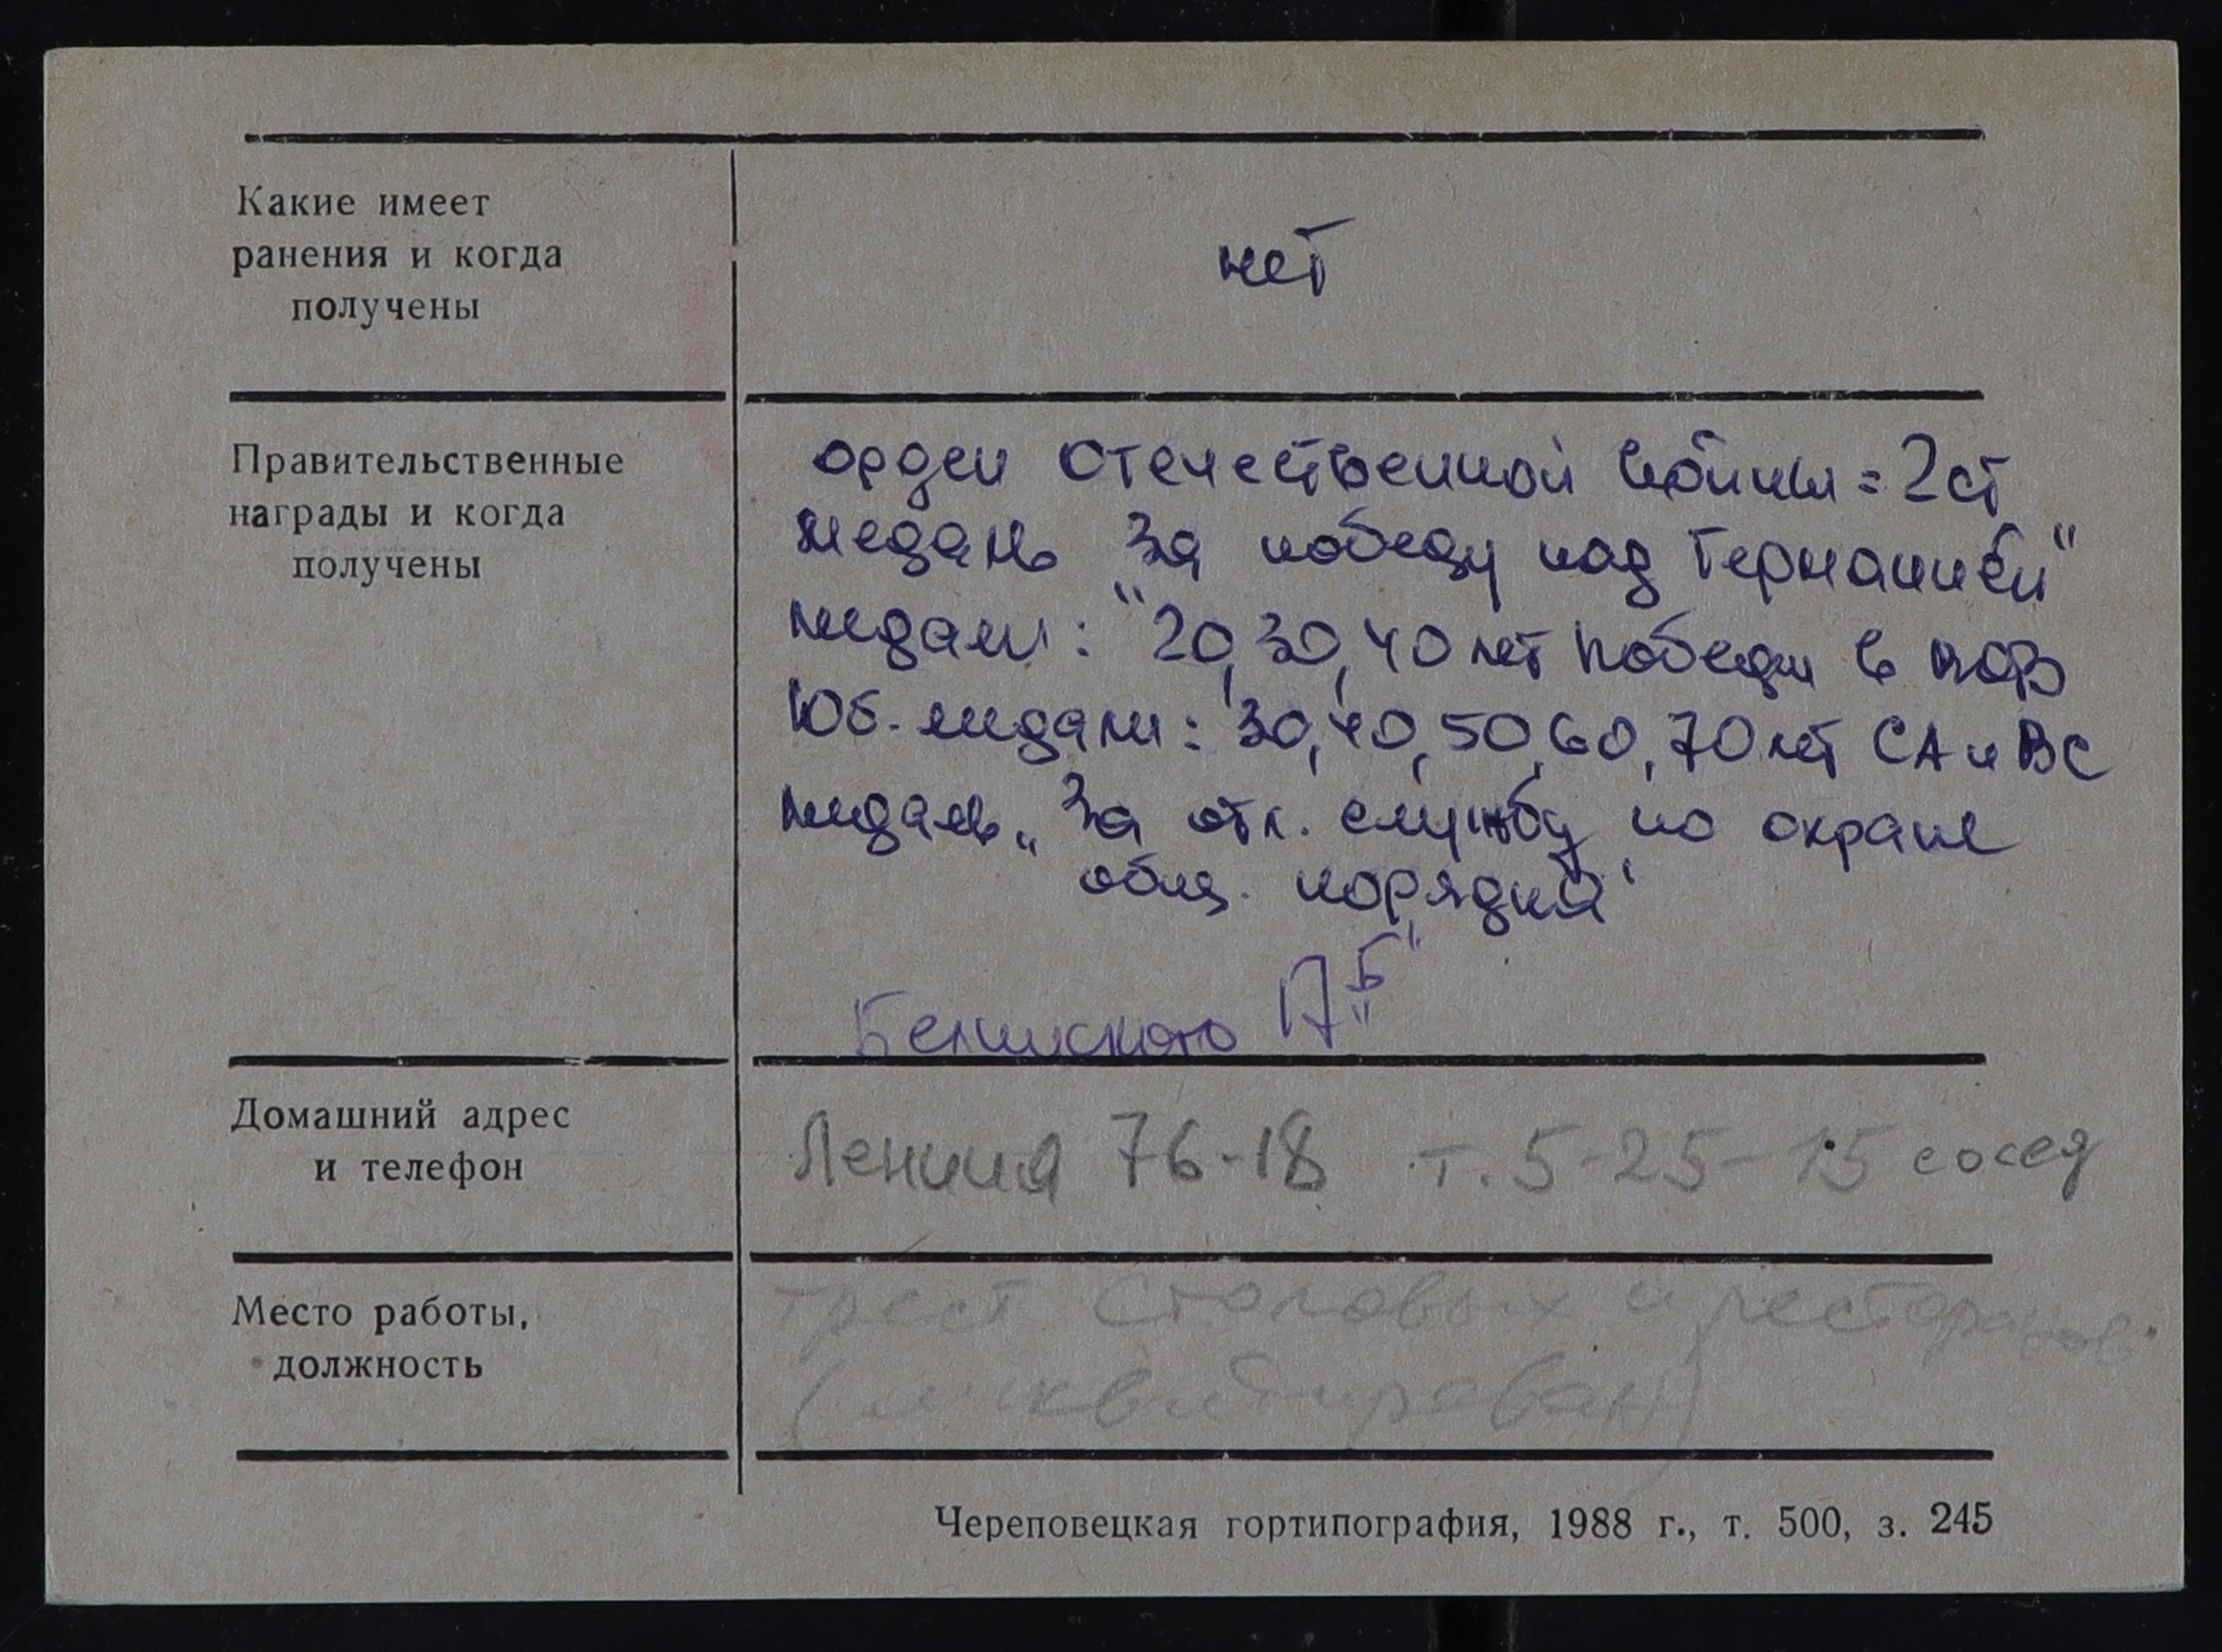 Какие имеет
ранения и когда
получены
нет
Правительственные
награды и когда
получены
орден Отечественной войны = 2 ст
медаль "За победу над Германией"
медали: "20, 30, 40 лет Победы в ВОВ
Юб. медали: 30, 40, 50, 60, 70 лет СА и ВС
медаль „За отл. службу по охране
общ. порядка"
Белинского
Домашний адрес
и телефон
Ленина 76-18 т. 5-25-15 сосед
Место работы,
должность
трест столовых и ресторанов
(ликвидирован)
Череповецкая гортипография, 1988 г., т. 500, з. 245